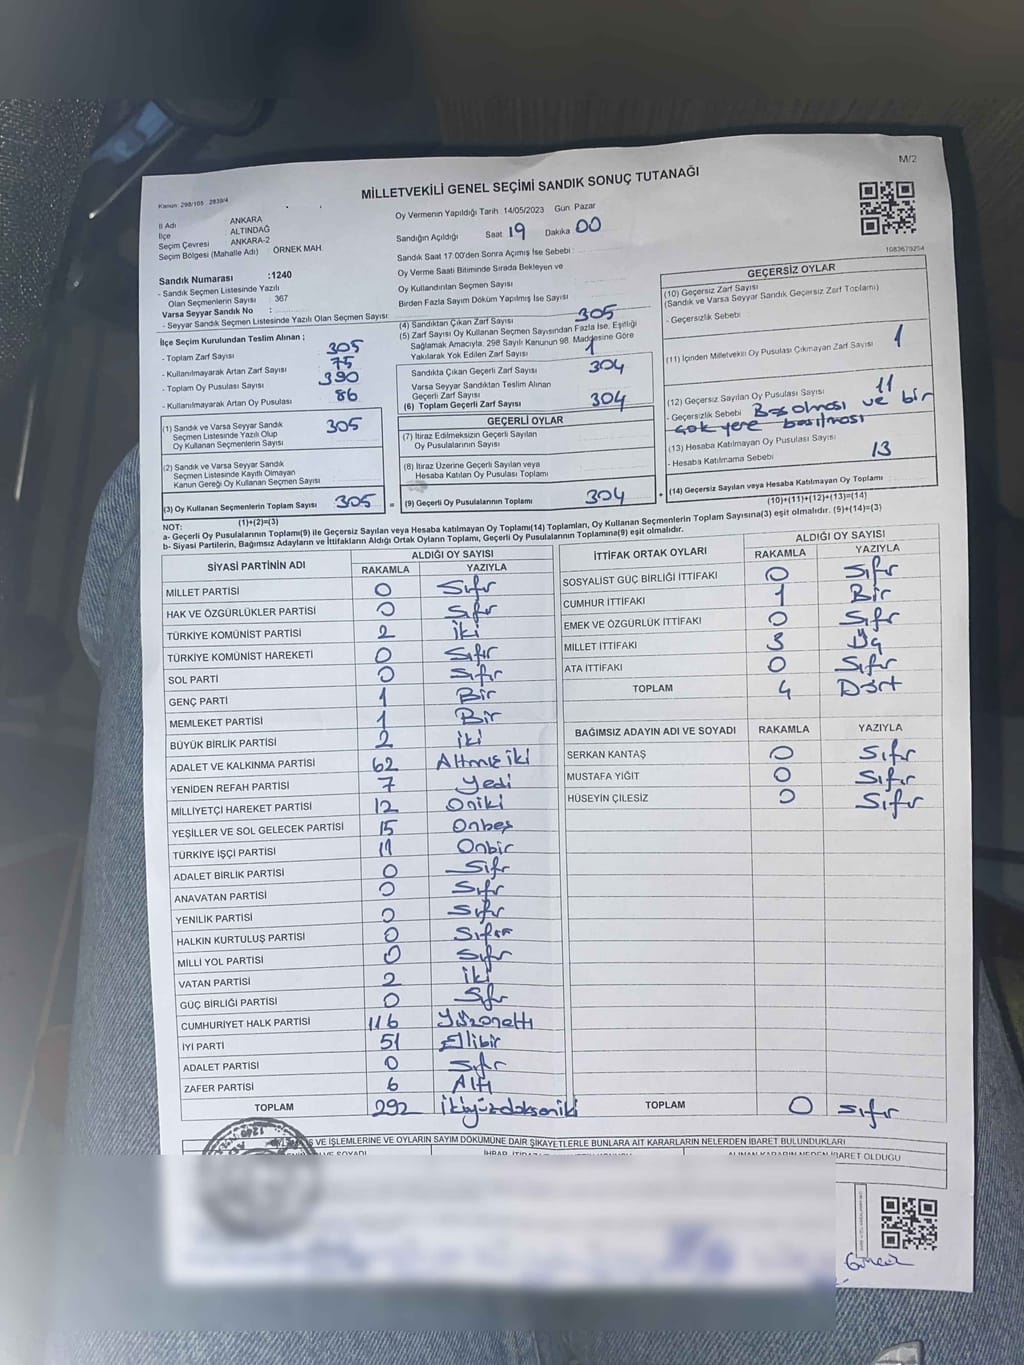 M/2
MİLLETVEKİLİ GENEL SEÇİMİ SANDIK SONUÇ TUTANAĞI
Kanun: 298/105 , 2839/4
İl Adı ANKARA
İlçe ALTINDAĞ
Seçim Çevresi ANKARA-2
Seçim Bölgesi (Mahalle Adı) ÖRNEK MAH.
Sandık Numarası :1240
- Sandık Seçmen Listesinde Yazılı
Olan Seçmenlerin Sayısı 367
Varsa Seyyar Sandık No :
- Seyyar Sandık Seçmen Listesinde Yazılı Olan Seçmen Sayısı:
Oy Vermenin Yapıldığı Tarih 14/05/2023 Gün Pazar
Sandığın Açıldığı Saat 19 Dakika 00
Sandık Saat 17.00'den Sonra Açımış İse Sebebi :
Oy Verme Saati Bitiminde Sırada Bekleyen ve
Oy Kullandırılan Seçmen Sayısı
Birden Fazla Sayım Döküm Yapılmış İse Sayısı
1083679254
İlçe Seçim Kurulundan Teslim Alınan ;
- Toplam Zarf Sayısı 305
- Kullanılmayarak Artan Zarf Sayısı 75
- Toplam Oy Pusulası Sayısı 390
- Kullanılmayarak Artan Oy Pusulası 86
(1) Sandık ve Varsa Seyyar Sandık
Seçmen Listesinde Yazılı Olup
Oy Kullanan Seçmenlerin Sayısı 305
(2) Sandık ve Varsa Seyyar Sandık
Seçmen Listesinde Kayıtlı Olmayan
Kanun Gereği Oy Kullanan Seçmen Sayısı
(3) Oy Kullanan Seçmenlerin Toplam Sayısı 305
(1)+(2)=(3)
(4) Sandıktan Çıkan Zarf Sayısı 305
(5) Zarf Sayısı Oy Kullanan Seçmen Sayısından Fazla İse, Eşitliği
Sağlamak Amacıyla, 298 Sayılı Kanunun 98. Maddesine Göre
Yakılarak Yok Edilen Zarf Sayısı 1
Sandıkta Çıkan Geçerli Zarf Sayısı 304
Varsa Seyyar Sandıktan Teslim Alınan
Geçerli Zarf Sayısı
(6) Toplam Geçerli Zarf Sayısı 304
GEÇERLİ OYLAR
(7) İtiraz Edilmeksizin Geçerli Sayılan
Oy Pusulalarının Sayısı
(8) İtiraz Üzerine Geçerli Sayılan veya
Hesaba Katılan Oy Pusulası Toplamı
= (9) Geçerli Oy Pusulalarının Toplamı 304
GEÇERSİZ OYLAR
(10) Geçersiz Zarf Sayısı
(Sandık ve Varsa Seyyar Sandık Geçersiz Zarf Toplamı)
- Geçersizlik Sebebi
(11) İçinden Milletvekili Oy Pusulası Çıkmayan Zarf Sayısı 1
(12) Geçersiz Sayılan Oy Pusulası Sayısı 11
- Geçersizlik Sebebi Boş olması ve bir
çok yere basılması
(13) Hesaba Katılmayan Oy Pusulası Sayısı
- Hesaba Katılmama Sebebi 13
+ (14) Geçersiz Sayılan veya Hesaba Katılmayan Oy Toplamı
(10)+(11)+(12)+(13)=(14)
NOT:
a- Geçerli Oy Pusulalarının Toplamı(9) ile Geçersiz Sayılan veya Hesaba katılmayan Oy Toplamı(14) Toplamları, Oy Kullanan Seçmenlerin Toplam Sayısına(3) eşit olmalıdır. (9)+(14)=(3)
b- Siyasi Partilerin, Bağımsız Adayların ve İttifakların Aldığı Ortak Oyların Toplamı, Geçerli Oy Pusulalarının Toplamına(9) eşit olmalıdır.
SİYASİ PARTİNİN ADI ALDIĞI OY SAYISI
RAKAMLA YAZIYLA
MİLLET PARTİSİ 0 Sıfır
HAK VE ÖZGÜRLÜKLER PARTİSİ 0 Sıfır
TÜRKİYE KOMÜNİST PARTİSİ 2 İki
TÜRKİYE KOMÜNİST HAREKETİ 0 Sıfır
SOL PARTİ 0 Sıfır
GENÇ PARTİ 1 Bir
MEMLEKET PARTİSİ 1 Bir
BÜYÜK BİRLİK PARTİSİ 2 iki
ADALET VE KALKINMA PARTİSİ 62 Altmış iki
YENİDEN REFAH PARTİSİ 7 Yedi
MİLLİYETÇİ HAREKET PARTİSİ 12 Oniki
YEŞİLLER VE SOL GELECEK PARTİSİ 15 Onbeş
TÜRKİYE İŞÇİ PARTİSİ 11 Onbir
ADALET BİRLİK PARTİSİ 0 Sıfır
ANAVATAN PARTİSİ 0 Sıfır
YENİLİK PARTİSİ 0 Sıfır
HALKIN KURTULUŞ PARTİSİ 0 Sıfır
MİLLİ YOL PARTİSİ 0 Sıfır
VATAN PARTİSİ 2 iki
GÜÇ BİRLİĞİ PARTİSİ 0 Sıfır
CUMHURİYET HALK PARTİSİ 116 Yüzonaltı
İYİ PARTİ 51 Ellibir
ADALET PARTİSİ 0 Sıfır
ZAFER PARTİSİ 6 Altı
TOPLAM 292 ikiyüzdoksaniki
İTTİFAK ORTAK OYLARI ALDIĞI OY SAYISI
RAKAMLA YAZIYLA
SOSYALİST GÜÇ BİRLİĞİ İTTİFAKI 0 Sıfır
CUMHUR İTTİFAKI 1 Bir
EMEK VE ÖZGÜRLÜK İTTİFAKI 0 Sıfır
MİLLET İTTİFAKI 3 Üç
ATA İTTİFAKI 0 Sıfır
TOPLAM 4 Dört
BAĞIMSIZ ADAYIN ADI VE SOYADI RAKAMLA YAZIYLA
SERKAN KANTAŞ 0 Sıfır
MUSTAFA YİĞİT 0 Sıfır
HÜSEYİN ÇİLESİZ 0 Sıfır
TOPLAM 0 Sıfır
VE İŞLEMLERİNE VE OYLARIN SAYIM DÖKÜMÜNE DAİR ŞİKAYETLERLE BUNLARA AİT KARARLARIN NELERDEN İBARET BULUNDUKLARI
İBARET OLDUĞU